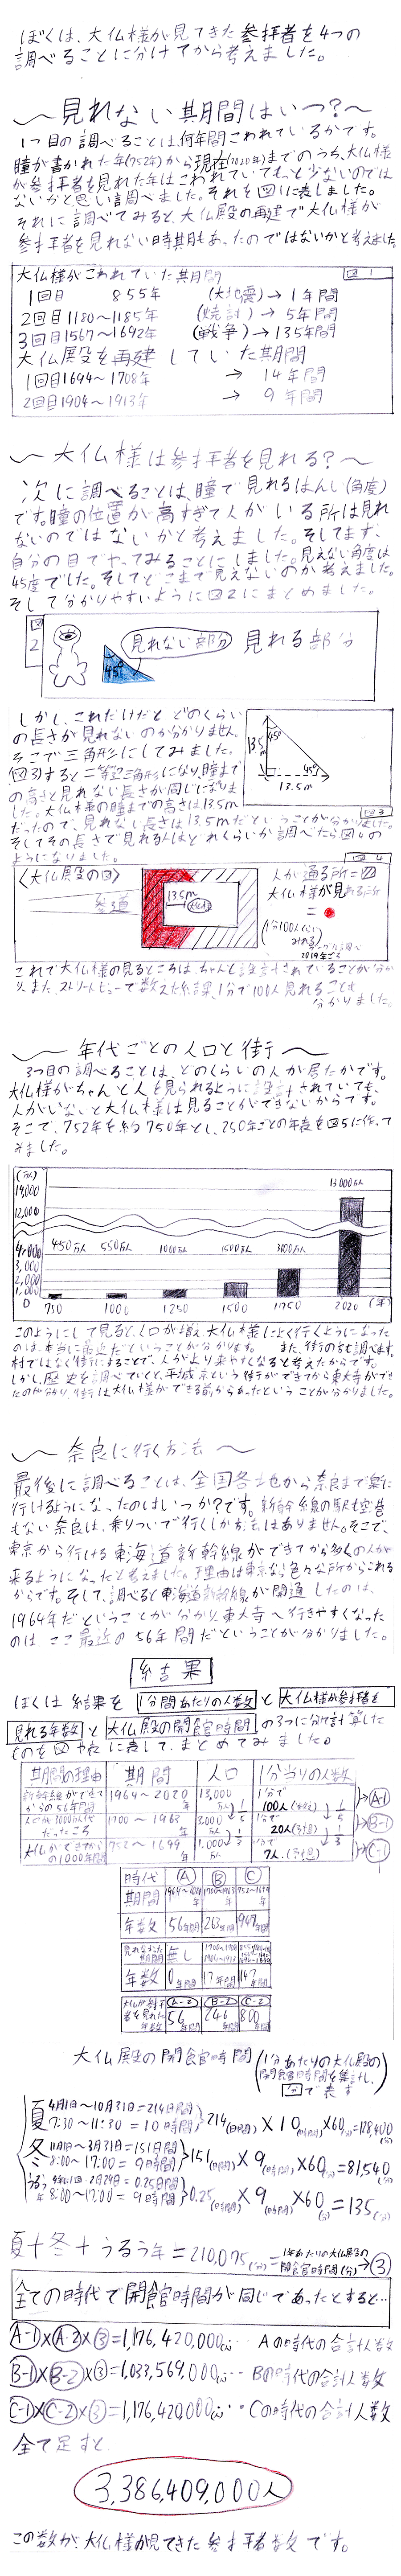 ぼくは、大仏様が見てきた参拝者を4つの
調べることに分けてから考えました。
〜見れない期間はいつ?〜
1つ目の調べることは、何年間こわれているかです。
瞳が書かれた年(752年)から現在(2020年)までのうち、大仏様
が参拝者を見れた年はこわれていてもっと少ないのでは
ないかと思い調べました。それを図1に表しました。
それに調べてみると、大仏殿の再建で大仏様が
参拝者を見れない時期もあったのではないかと考えました
大仏様がこわれていた期間
図1
1回目 855年 (大地震)→1年間
2回目1180〜1185年 (焼討)→5年間
3回目1567〜1692年 (戦争)→135年間
大仏殿を再建していた期間
1回目1694〜1708年 → 14年間
2回目1904〜1913年 → 9年間
〜大仏様は参拝者を見れる?〜
次に調べることは、瞳で見れるはんい(角度)
です。瞳の位置が高すぎて人がいる所は見れ
ないのではないかと考えました。そしてまず、
自分の目でやってみることにしました。見えない角度は
45度でした。そしてどこまで見えないのか考えました。
そして分かりやすいように図2にまとめました。
図2
45°
見れない部分
見れる部分
しかし、これだけだとどのくらい
の長さが見れないのか分かりません。
そこで三角形にしてみました。
(図3)すると二等辺三角形になり、瞳まで
の高さと見れない長さが同じになりま
した。大仏様の瞳までの高さは13.5m
だったので、見れない長さは13.5mだということが分かりました。
そしてその長さで見れる人はどれくらいか調べたら図4の
ようになりました。
13.5m
45°
45°
13.5m
図3
図4
〈大仏殿の図〉
参道
13.5m
大仏様
人が通る所=
大仏様が見れる所
=
(1分100人くらい
みれる)
2019年ごろ
これで大仏様の見るところは、ちゃんと設計されていることが分か
り、また、ストリートビューで数えた結果、1分で100人見れることも
分かりました。
〜年代ごとの人口と街〜
3つ目の調べることは、どのくらいの人が居たかです。
大仏様がちゃんと人を見られるように設計されていても、
人がいないと大仏様は見ることができないからです。
そこで、752年を約750年とし、250年ごとの年表を図5に作って
みました。
(万人)
14,000
12,000
4,000
3,000
2,000
1,000
0
450万人
550万人
1000万人
1500万人
3100万人
13000万人
750
1000
1250
1500
1750
2020 (年)
このようにして見ると、人口が増え、大仏様によく行くようになった
のは、本当に最近だということが分かります。また、街の方も調べます。
村ではなく街にすることで、人がより来やすくなると考えたからです。
しかし、歴史を調べていくと、平城京という街ができてから東大寺ができ
たのが分かり、街は大仏様ができる前からあったということが分かりました。
〜奈良に行く方法〜
最後に調べることは、全国各地から奈良まで楽に
行けるようになったのはいつか?です。新幹線の駅も空港
もない奈良は、乗りついで行くしか方法はありません。そこで、
東京から行ける東海道新幹線ができてから多くの人が
来るようになったと考えました。理由は東京なら色々な所からこれる
からです。そして、調べると東海道新幹線が開通したのは、
1964年だということが分かり、東大寺へ行きやすくなった
のはここ最近の56年間だということが分かりました。
結果
ぼくは結果を1分間あたりの人数と大仏様が参拝者を
見れる年数と大仏殿の開館時間の3つに分け計算した
ものを図や表に表して、まとめてみました。
期間の理由 期間 人口 1分当りの人数
新幹線ができてからの56年間 1964〜2020年 13,000万人 1分で100人(数え) →A-1
人口が3000万人代だったころ 1700〜1963年 3,000万人 1分で20人(予想) →B-1
大仏ができてからの1000年間 752〜1699年 1,000万人 1分で7人(予想) →C-1
時代 A B C
期間 1964〜2020年 1700〜1963年 752〜1699年
年数 56年間 263年間 947年間
見れなかった期間 無し
年数 0年間 17年間 147年間
大仏が参拝者を見れた年数 A-2 56年間 B-2 246年間 C-2 800年間
大仏殿の開館時間(1分あたりの大仏殿の
開館時間を集計し、
図で表す
夏 4月1日〜10月31日=214日間
7:30〜17:30=10時間 }214(日間)×10(時間)×60(分)=128,400(分)
冬 11月1日〜3月31日=151日間
8:00〜17:00=9時間 }151(日間)×9(時間)×60(分)=81,540(分)
うるう年 2月29日=0.25日間
8:00〜17:00=9時間 }0.25(日間)×9(時間)×60(分)=135(分)
夏+冬+うるう年=210,075(分)=1年あたりの大仏殿の開館時間(分)→③
全ての時代で開館時間が同じであったとすると…
A-1×A-2×③=1,176,420,000(人)…Aの時代の合計人数
B-1×B-2×③=1,033,569,000(人)…Bの時代の合計人数
C-1×C-2×③=1,176,420,000(人)…Cの時代の合計人数
全て足すと、
3,386,409,000人
この数が、大仏様が見てきた参拝者数です。